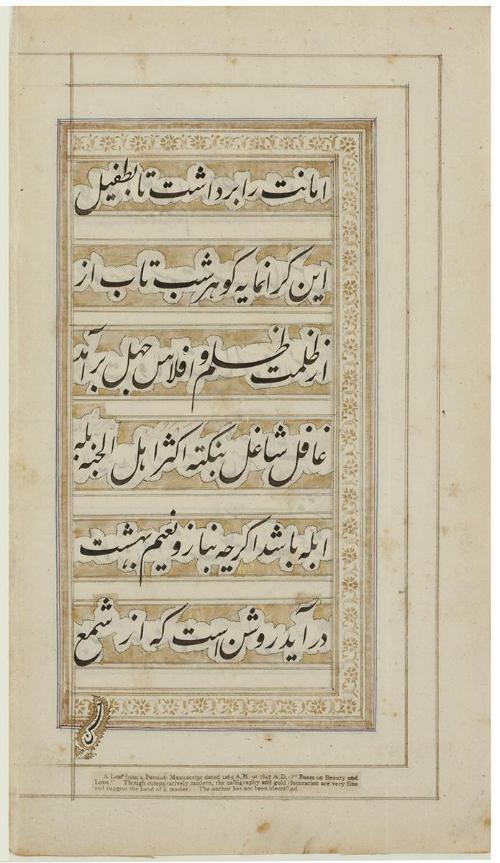 امانت را برداشت تا بطفیل
این گرانمایه گوهر شب تاب از
از ظلمت ظلم و افلاس جهل برآمد
غافل شاغل بنکته اکثر اهل الجنه بله
ابله باشد اگرچه بناز و نعیم بهشت
در آید روشن است که از شمع
A Leaf from a Persian Manuscript dated 1263 A.H. or 1847 A.D.—"Poem on Beauty and
Love." Though comparatively modern, the calligraphy and gold decoration are very fine
and suggest the hand of a master. The author has not been identified.